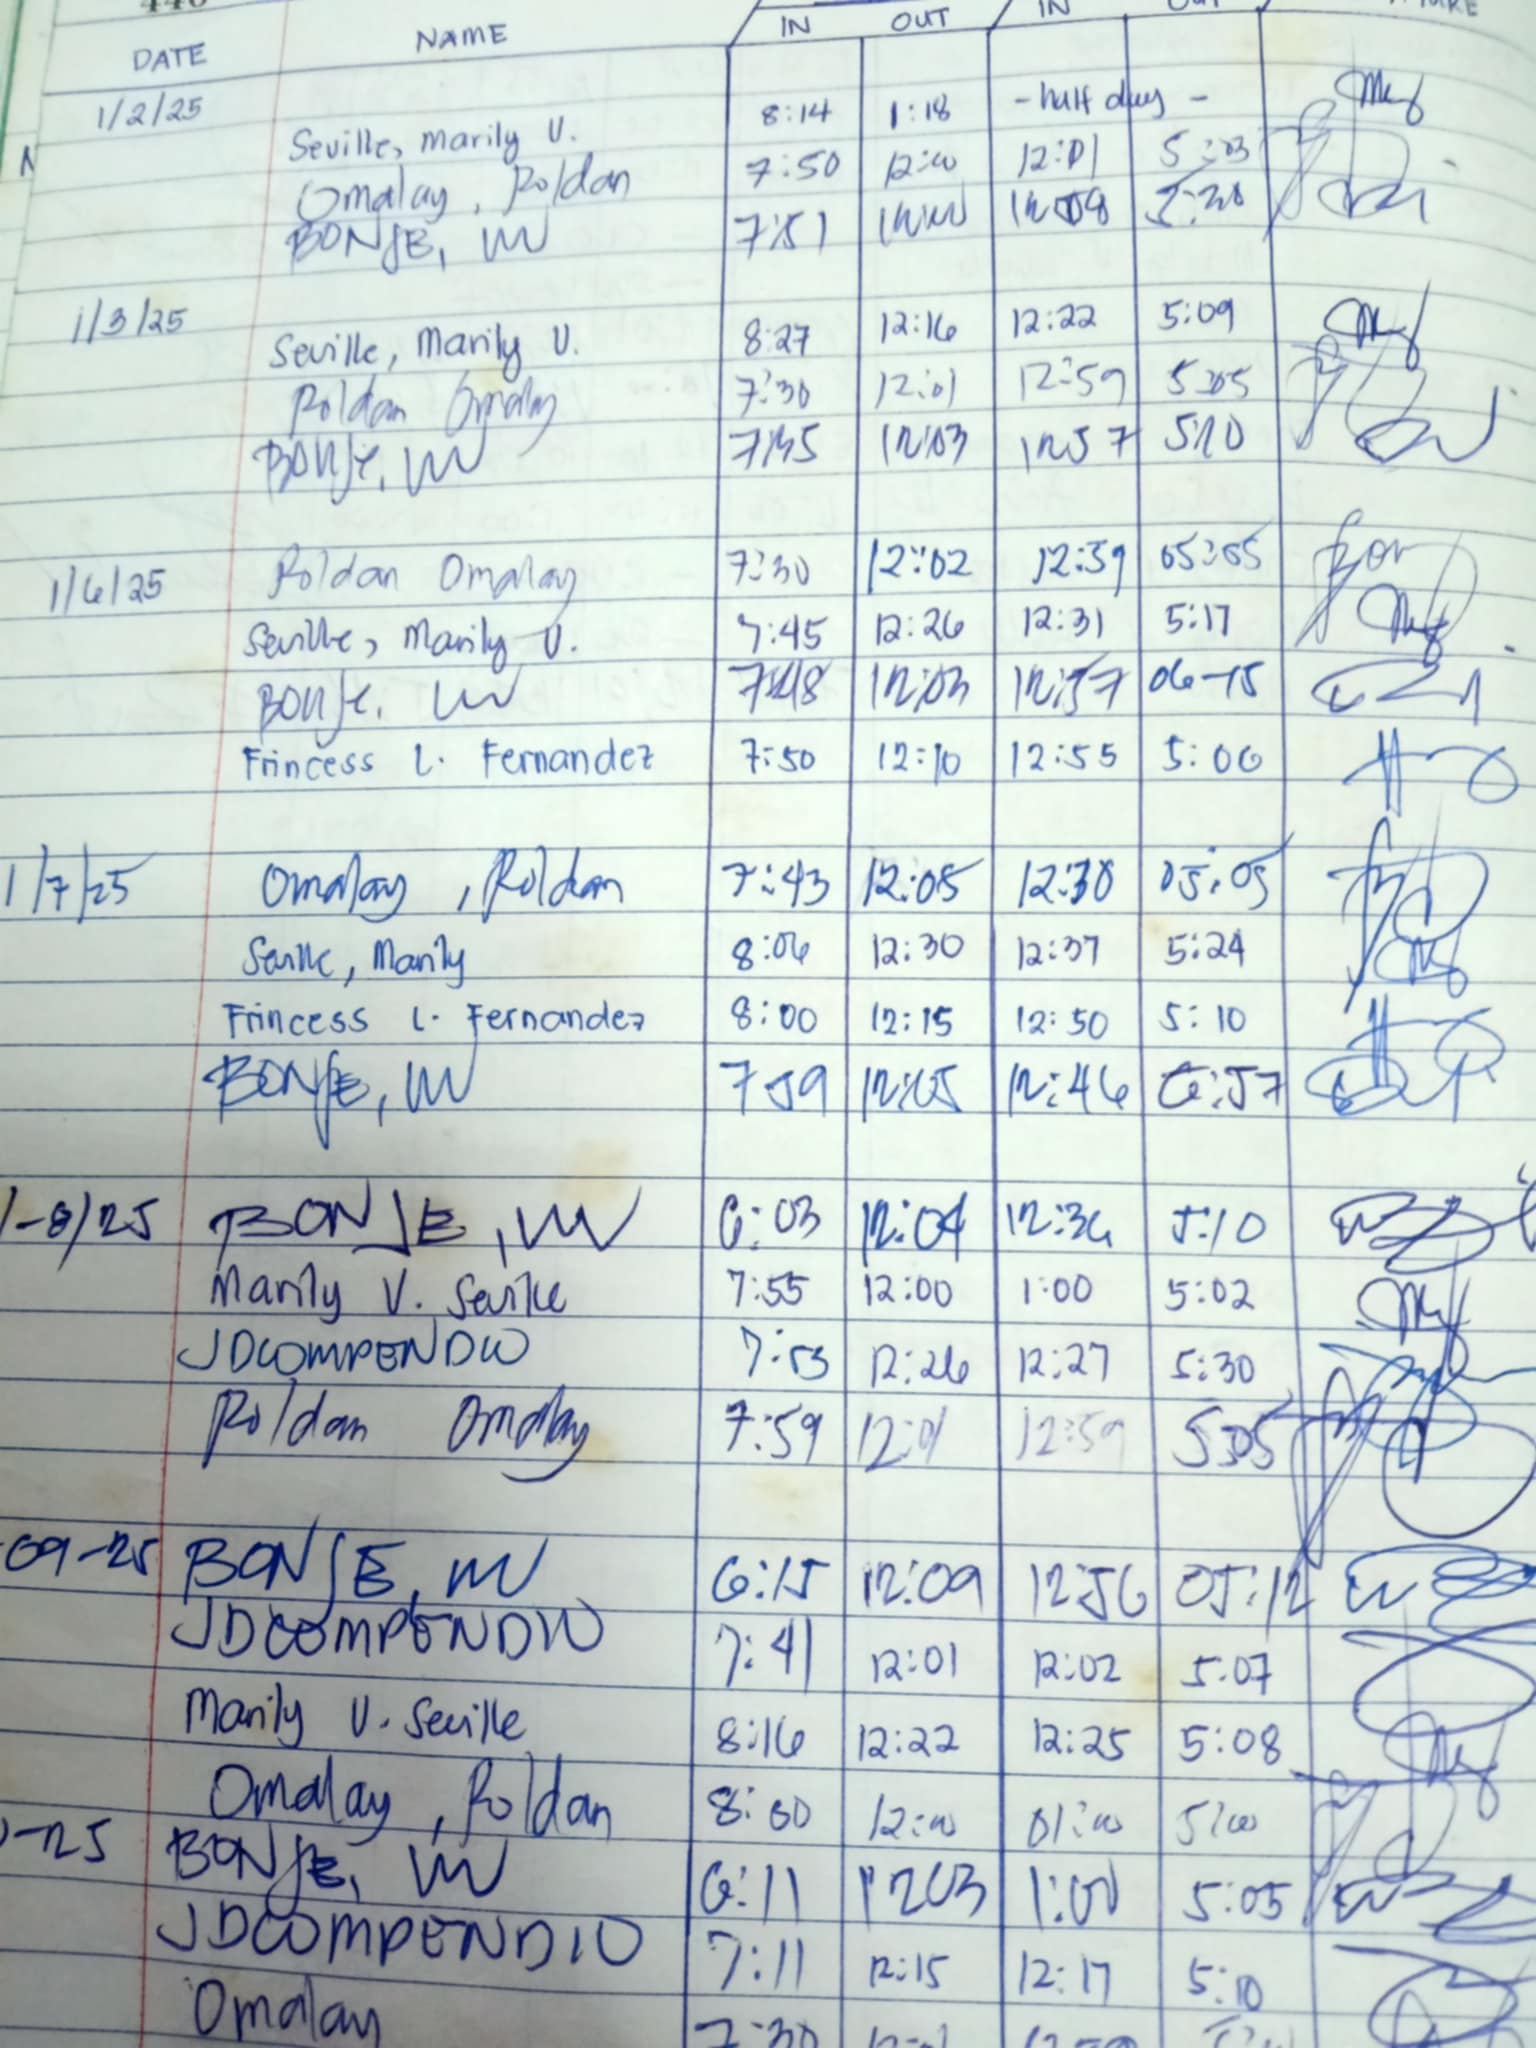 446
DATE NAME IN OUT IN OUT
1/2/25
Seville, Marily V. 8:14 1:18 - half day -
Omalay, Roldan 7:50 12:00 12:01 5:03
BONJE, 7:51
1/3/25
Seville, Marily V. 8:27 12:16 12:22 5:09
Roldan Omalay 7:30 12:01 12:59 5:05
BONJE, 7:35 12:03 12:57 5:10
1/6/25 Roldan Omalay 7:30 12:02 12:59 05:05
Seville, Marily V. 7:45 12:26 12:31 5:17
BONJE, 7:48 12:03 12:57 06-15
Frincess L. Fernandez 7:50 12:10 12:55 5:00
1/7/25 Omalay, Roldan 7:43 12:05 12:30 05:05
Seville, Marily 8:06 12:30 12:37 5:24
Frincess L. Fernandez 8:00 12:15 12:50 5:10
BONJE, 7 59 12:05 12:46 6:57
1-8/25 BONJE, 6:03 12:04 12:36 5:10
Marily V. Seville 7:55 12:00 1:00 5:02
JDCOMPENDIO 7:53 12:26 12:27 5:30
Roldan Omalay 7:59 12:01 12:59 5:05
09-25 BONJE, 6:15 12:09 12:56 05:12
JDCOMPENDIO 7:41 12:01 12:02 5:07
Marily V. Seville 8:16 12:22 12:25 5:08
Omalay, Roldan 8:00 12:00 01:00 5:00
-25 BONJE, 6:11 1203 1:00 5:05
JDCOMPENDIO 7:11 12:15 12:17 5:10
Omalay 7:30